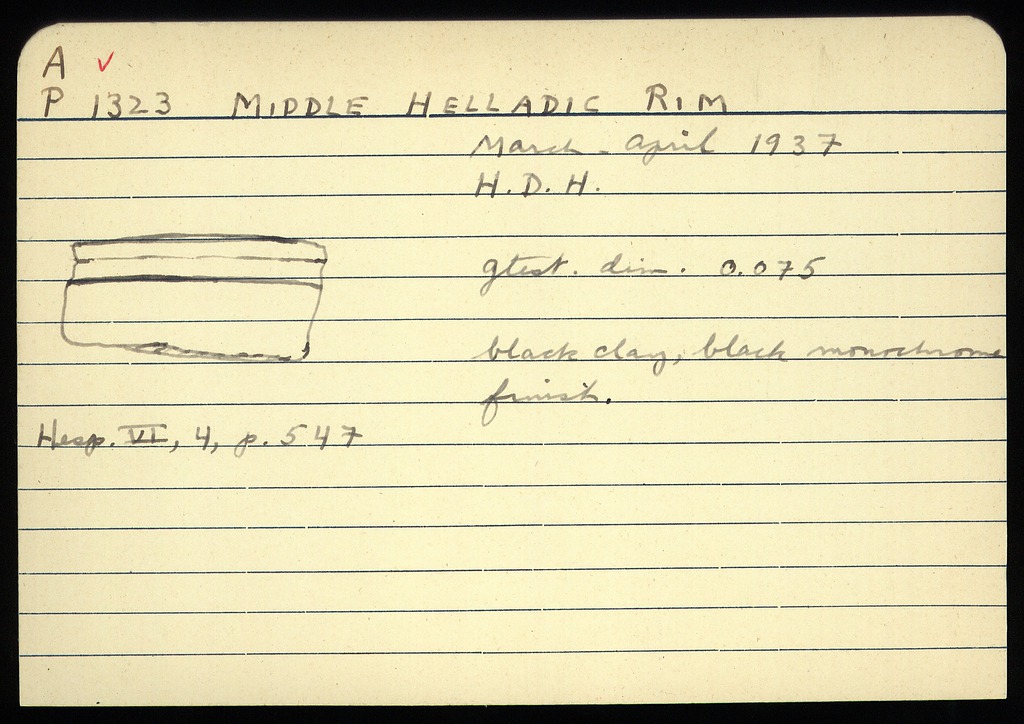 A ✓
P 1323 MIDDLE HELLADIC RIM
March - April 1937
H.D.H.
gtest. dim. 0.075
black clay, black monochrome
finish.
Hesp. VI, 4, p. 547